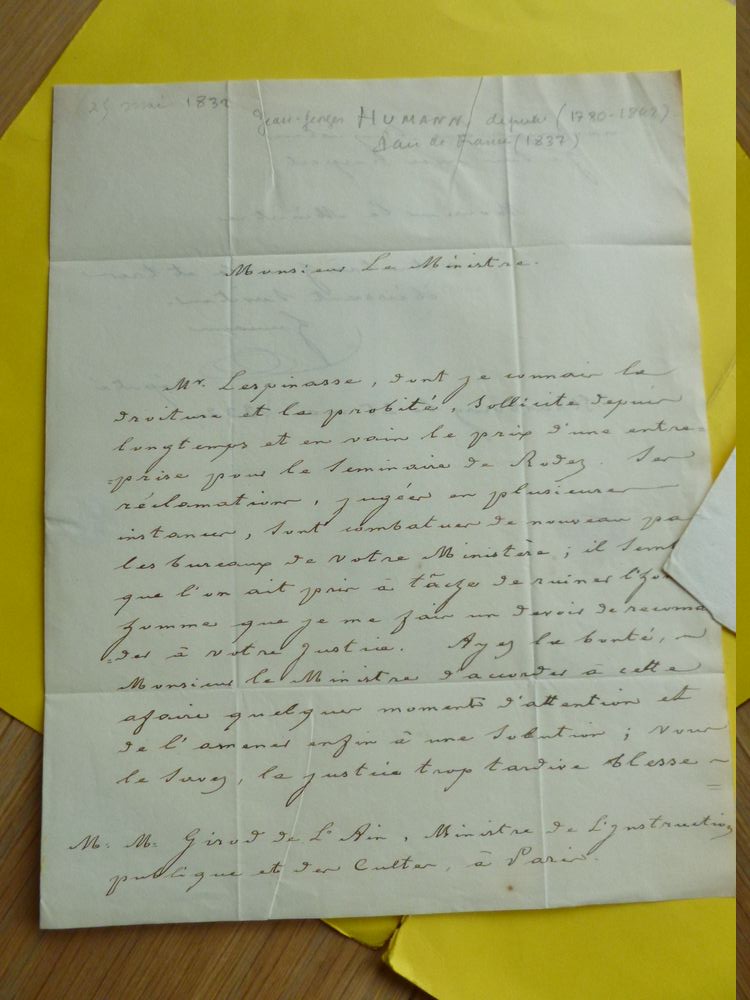 (25 mai 1832
Jean-Georges HUMANN, député (1780-1842)
Pair de France (1837)
Monsieur Le Ministre.
Mr. Lespinasse, dont je connais la
droiture et la probité, sollicite depuis
longtemps et en vain le prix d'une entre=
=prise pour le Seminaire de Rodez. Ses
réclamations, jugées en plusieurs
instances, sont combatues de nouveau pa
les bureaux de votre Ministère; il sem
que l'on ait pris à tâche de ruiner l'ho
homme que je me fais un devoir de recoma
=der à votre Justice. Ayez la bonté,
Monsieur le Ministre d'accorder à cette
afaire quelques moments d'attention et
de l'amener enfin à une Solution; Vous
le Savez, la justice trop tardive blesse ~
M. M. Girod de L'Ain, Ministre de L'Instruction
publique et des Cultes, à Paris.